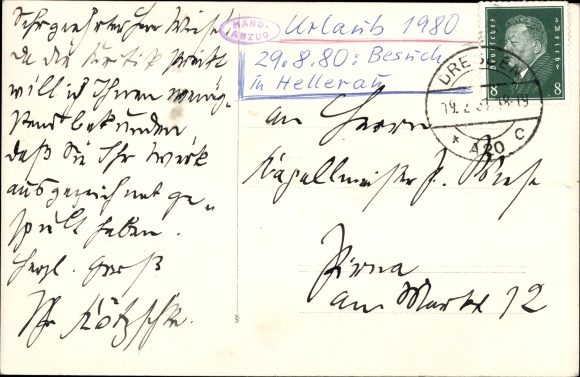 Sehr geehrter Herr Wiese
da die Kritik streikt
will ich Ihnen wenig-
stens bekunden
daß Sie Ihr Werk
ausgezeichnet ge-
spielt haben.
Herzl. Gruß
Ihr Kötzschke.
HAND-
ABZUG
Urlaub 1980
29.8.80: Besuch
in Hellerau
Deutsches Reich
8 8
DRESDEN
A20 C
An Herrn
Kapellmeister Wiese
Pirna
am Markt 12